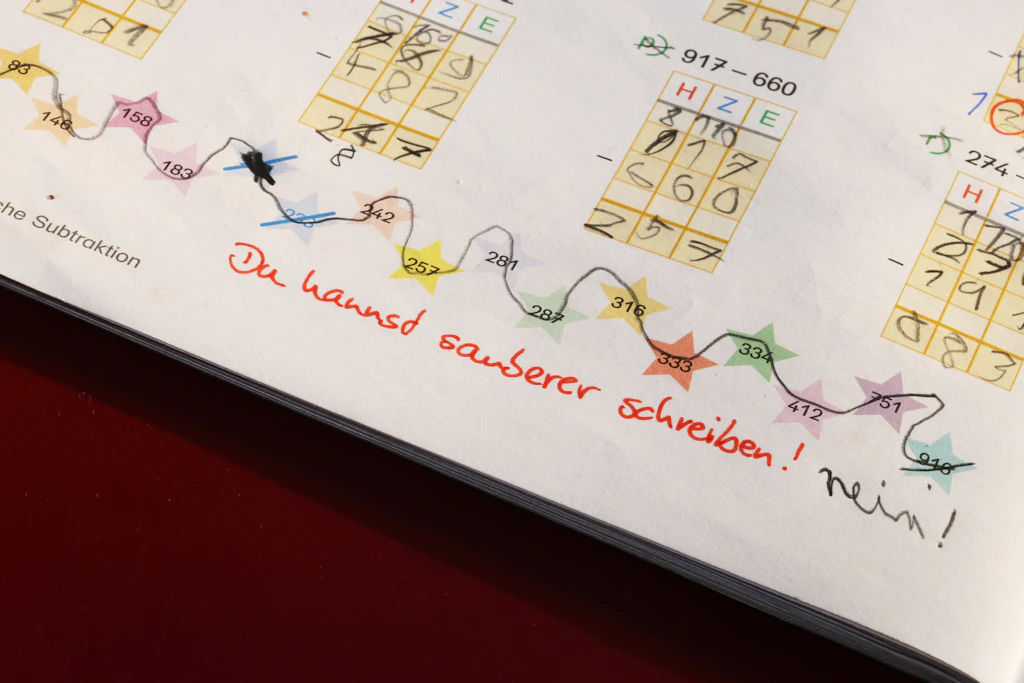 7 5 1
2 1
H Z E
4 8 2
2 4 7
8
p) 917 – 660
H Z E
8 11 10
9 1 7
– 6 6 0
2 5 7
r) 274 –
H Z
– 1 9
0 8 3
83
146
158
183
242
257
281
287
316
333
334
412
751
916
che Subtraktion
Du kannst sauberer schreiben!
nein!